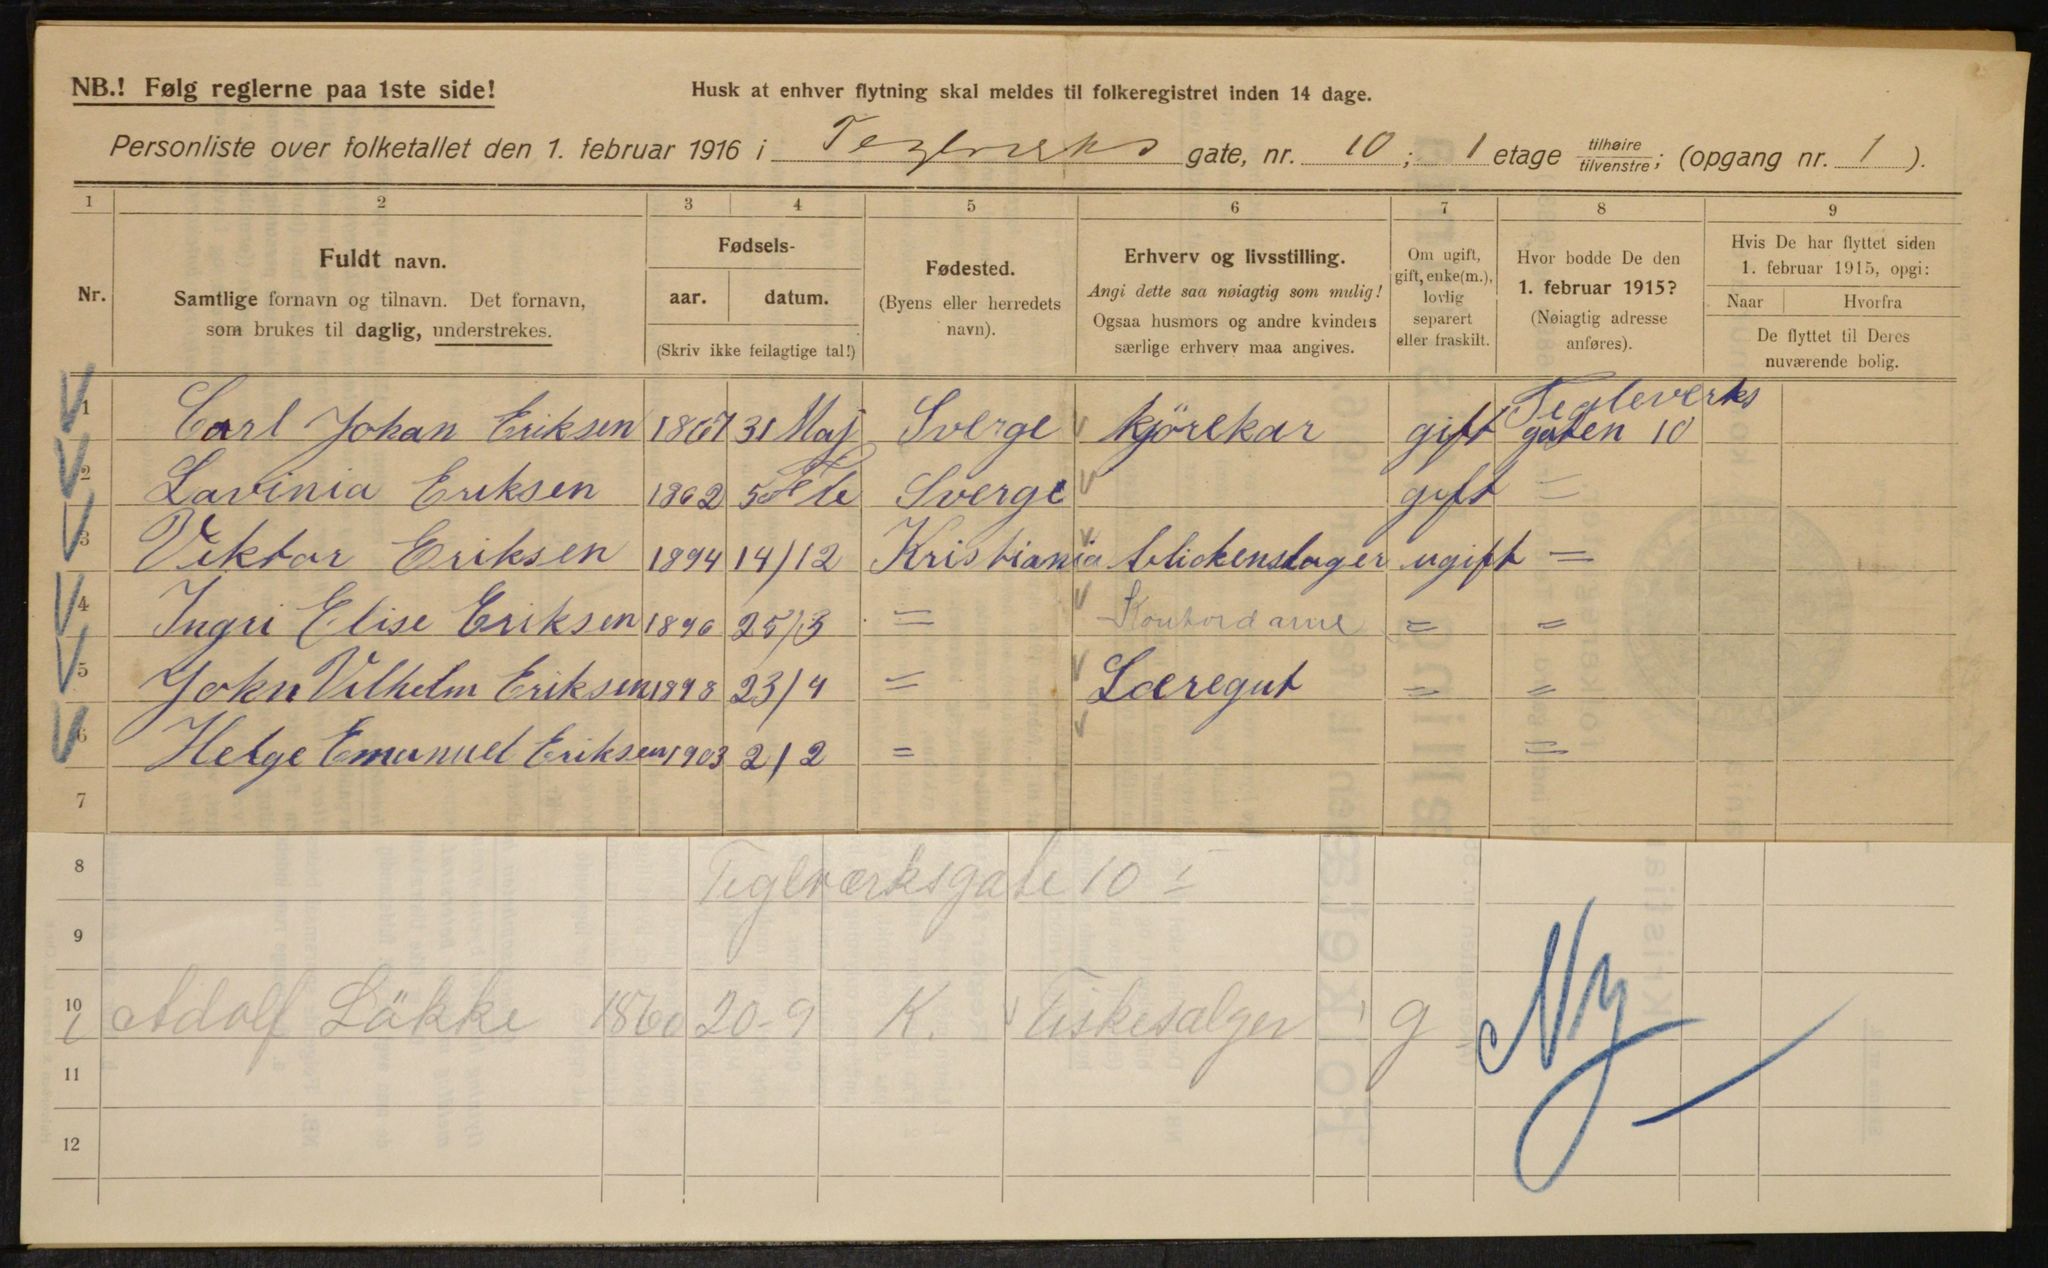 NB.! Følg reglerne paa 1ste side!
Husk at enhver flytning skal meldes til folkeregistret inden 14 dage.
Personliste over folketallet den 1. februar 1916 i Teglverks gate, nr. 10; 1 etage tilhøire/tilvenstre; (opgang nr. 1).
1 2 3 4 5 6 7 8 9
Nr.
Fuldt navn.
Samtlige fornavn og tilnavn. Det fornavn,
som brukes til daglig, understrekes.
Fødsels-
aar. datum.
(Skriv ikke feilagtige tal!)
Fødested.
(Byens eller herredets
navn).
Erhverv og livsstilling.
Angi dette saa nøiagtig som mulig!
Ogsaa husmors og andre kvinders
særlige erhverv maa angives.
Om ugift,
gift, enke(m.),
lovlig
separert
eller fraskilt.
Hvor bodde De den
1. februar 1915?
(Nøiagtig adresse
anføres).
Hvis De har flyttet siden
1. februar 1915, opgi:
Naar Hvorfra
De flyttet til Deres
nuværende bolig.
1 Carl Johan Eriksen 1867 31 Maj Sverge kjörekar gift Tegleverks gaten 10
2 Lavinia Eriksen 1862 5 Sverge gift =
3 Viktor Eriksen 1894 14/12 Kristiania blickenslager ugift =
4 Ingri Elise Eriksen 1896 25/3 = Kontordame = =
5 John Vilhelm Eriksen 1898 23/4 = Læregut = =
6 Helge Emanuel Eriksen 1903 2/2 = =
7
8 Teglværksgate 10 I
9
10 Adolf Lökke 1860 20-9 K. Fiskesælger g Ny
11
12